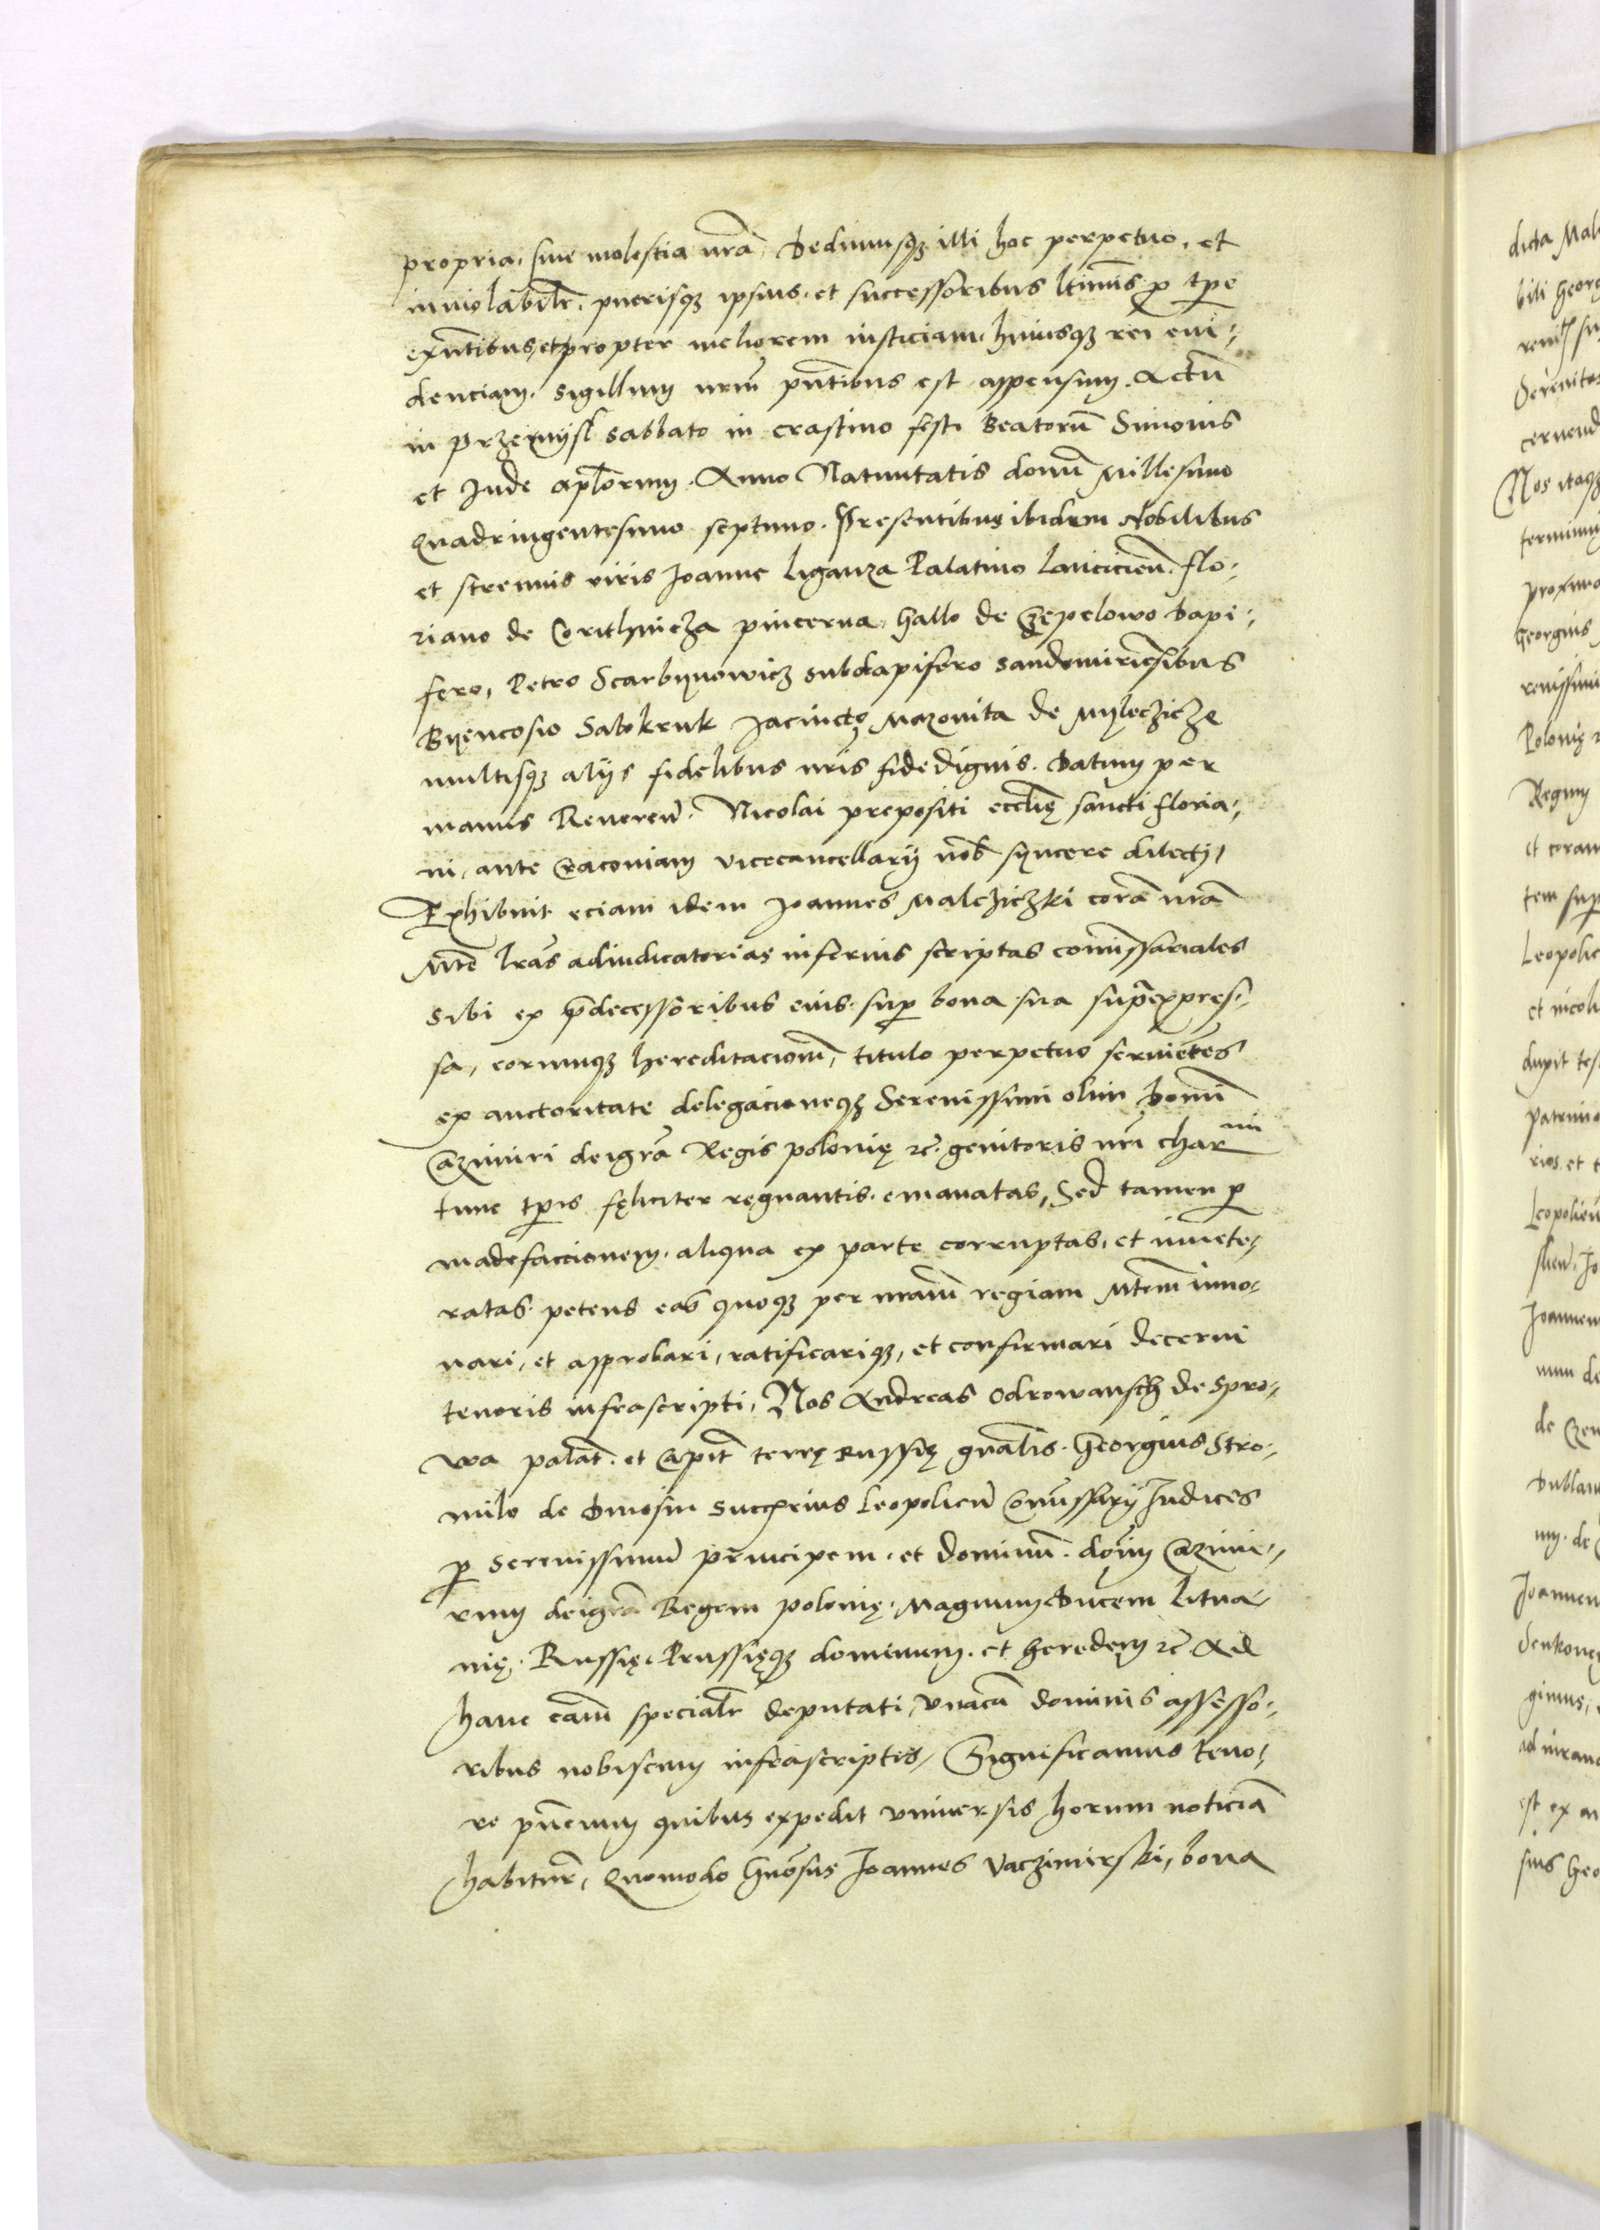 propria, sine molestia nrã, Dedimusqz illi hoc perpetuo, et
inuiolabilr̃. puerisqz ipsius. et successoribus ltimis p tpe
exñtibus, et propter meliorem iusticiam, huiusqz rei eui-
denciam. sigillum nrm̃ pñtibus est appensum. Actũ
in Przemysl sabbato in crastino festi Beatorũ Simonis
et Jude aplorum. Anno Natiuitatis domĩ Millesimo
Quadringentesimo septimo. Presentibus ibidem Nobilibus
et strenuis viris Joanne Liganza Palatino Lanciciẽn. Flo-
riano de Corithnicza pincerna, Hallo de Czepelowo Dapi-
fero, Petro Scarbijnowicz subdapifero sandomirien̄sibus
Bijencosio Sabkruk Jacincto Mazouita de Mylcczicze
multisqz alijs fidelibus nrĩs fidedignis. Datum per
manus Reueren̄. Nicolai prepositi ecclię sancti Floria-
ni, ante Cracouiam vicecancellarij nob̃ syncere dilecti,
Exhibuit eciam idem Joannes Malcziczki corã nrã
Mte lrãs adiudicatorias inferius scriptas com̃issariales
sibi ex p̃decessoribus eius. sup bona sua sup̃expres-
sa, eorumqz hereditacionĩ, titulo perpetuo seruiẽtes
ex auctoritate delegacioneqz Serenissimi olim Domĩ
Cazimiri deigrã Regis polonię rc̃. genitoris nrĩ char mi
tunc tpĩs feliciter regnantis. emanatas, Sed tamen p
madefaccionem. aliqua ex parte corruptas, et inuete-
ratas. petens eas quoqz per nram̃ regiam Mtem inno-
uari, et approbari, ratificariqz, et confirmari decerni
tenoris infrascripti, Nos Andreas Odrowansch de Spro-
wa palat̃. et Capit̃ terrę Russię gñalis. Georgius Stro-
milo de Dmosin succ̃rius Leopolien̄ Com̃issarij Judices
p serenissimũ principem. et dominũ. dom̃ Cazimi-
rum deigrã Regem polonię. Magnum Ducem Litua-
nię. Russię. Prussięqz dominum. et heredem rc̃ Ad
hanc cam̃ specialr̃ deputati, vnacũ dominis assesso-
ribus nobiscum infrascriptis, Significamus teno-
re pñcium quibus expedit vniuersis horum noticiã
habiturĩ, Quomodo Gñosus Joannes Vaczimirski, bona